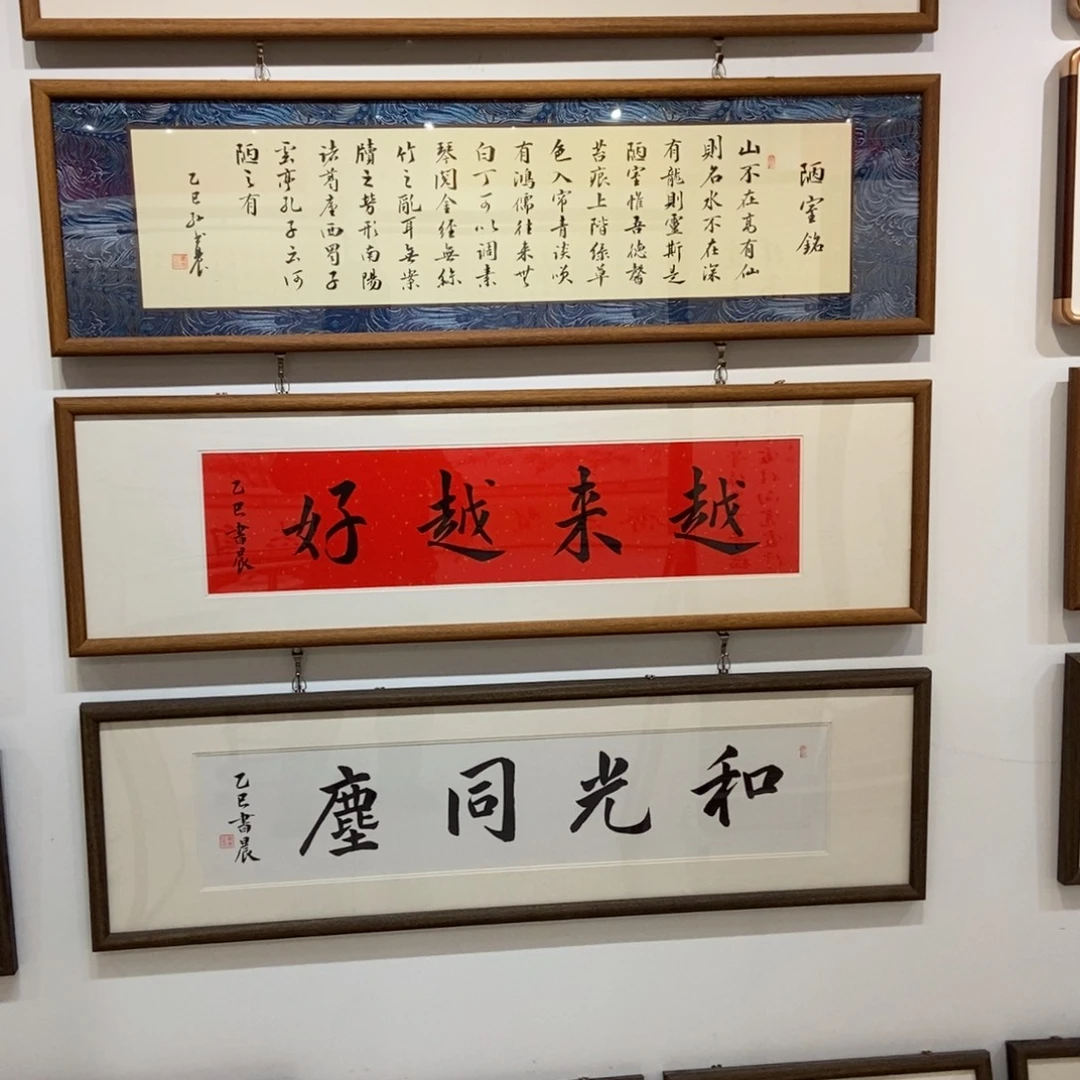 陋室銘
山不在高有仙
則名水不在深
有龍則靈斯是
陋室惟吾德馨
苔痕上階綠草
色入帘青談笑
有鴻儒往来無
白丁可以調素
琴閱金經無絲
竹之亂耳無案
牘之勞形南陽
諸葛廬西蜀子
雲亭孔子云何
陋之有
乙巳書晨
越来越好
乙巳書晨
和光同塵
乙巳書晨